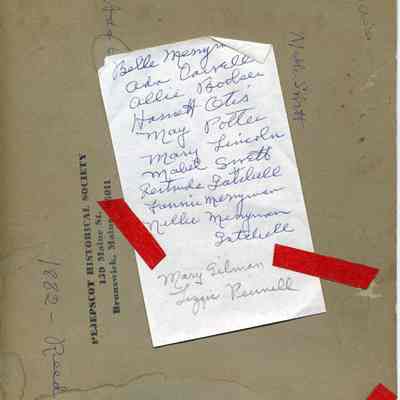 Belle Merryman
Ada Carvell
Allie Booker
Harriett Otis
May Potter
Mary Lincoln
Mabel Swett
Gertrude Gatchell
Fannie Merryman
Nellie Merryman
Gatchell
Mary Gilman
Lizzie Pennell
PEJEPSCOT HISTORICAL SOCIETY
159 Maine St.
Brunswick, Maine 04011
1882 - Reed